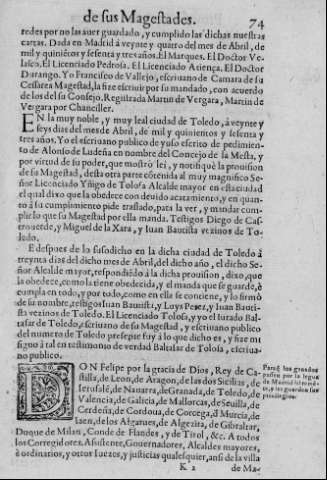 de sus Magestades. 74
redes por no las auer guardado, y cumplido las dichas nuestras
cartas. Dada en Madrid á veynte y quatro del mes de Abril, de
mil y quinientos y sesenta y tres años. El Marques. El Doctor Ve-
lasco. El Licenciado Pedrosa. El Licenciado Atiença. El Doctor
Durango. Yo Francisco de Vallejo, escriuano de Camara de su
Cesarea Magestad, la fize escriuir por su mandado, con acuerdo
de los del su Consejo. Registrada Martin de Vergara, Martin de
Vergara por Chanciller.
EN la muy noble, y muy leal ciudad de Toledo, á veynte y
seys dias del mes de Abril, de mil y quinientos y sesenta y
tres años. Yo el escriuano publico de yuso escrito de pedimiento
de Alonso de Ludeña en nombre del Concejo de la Mesta, y
por virtud de su poder, que mostró leí, y notifiqué la prouision
de su Magestad, desta otra parte cótenida al muy magnifico Se-
ñor Licenciado Yñigo de Tolosa Alcalde mayor en esta ciudad
el qual dixo que la obedece con deuido acatamiento, y en quan-
to á su cumplimiento pide traslado, para la ver, y mandar cum-
plir lo que su Magestad por ella manda. Testigos Diego de Cas-
trouerde, y Miguel de la Xara, y Iuan Bautista vezinos de To-
ledo.
E despues de lo susodicho en la dicha ciudad de Toledo á
treynta dias del dicho mes de Abril, del dicho año, el dicho Se-
ñor Alcalde mayor, respondiédo á la dicha prouision, dixo, que
la obedece, como la tiene obedecida, y el manda que se guarde, é
cumpla en todo, y por todo, como en ella se conciene, y lo firmó
de su nombre, testigos Iuan Bautista, y Luys Perez, y Iuan Bauti-
sta vezinos de Toledo. El Licenciado Tolosa, y yo el Iurado Bal-
tasar de Toledo, escriuano de su Magestad, y escriuano publico
del numero de Toledo presente fuy á lo que dicho es, y fize mi
signo á tal en testimonio de verdad Baltasar de Tolosa, escriua-
no publico.
DON Felipe por la gracia de Dios, Rey de Ca-
stilla, de Leon, de Aragon, de las dos Sicilias, de
Ierusalé, de Nauarra, de Granada, de Toledo, de
Valencia, de Galicia, de Mallorcas, de Seuilla, de
Cerdeña, de Cordoua, de Corcega, d Murcia, de
Iaen, de los Algarues, de Algezira, de Gibraltar,
Duque de Milan, Conde de Flandes, y de Tirol, &c. A todos
los Corregidores, Asistente, Gouernadores, Alcaldes mayores,
é ordinarios, y otros Iuezes, y justicias qualesquier, ansi de la villa
K 2 de Ma-
Paraq̃ los ganados
passen por la legua
de Madrid